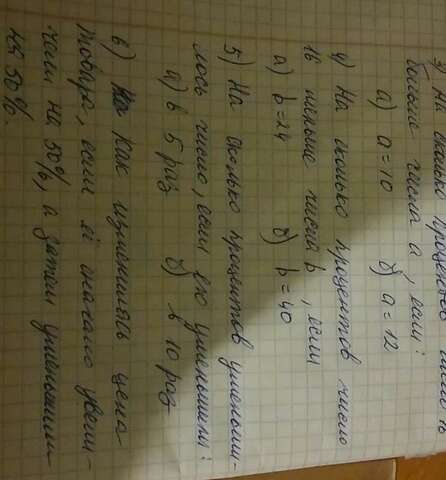 3) На сколько процентов число
больше числа a, если:
а) a = 10 б) a = 12
4) На сколько процентов число
16 меньше числа b, если
а) b = 24 б) b = 40
5) На сколько процентов уменьши-
лось число, если его уменьшили:
а) в 5 раз б) в 10 раз
в) Как изменилась цена
товара, если её сначала увели-
чили на 50%, а затем уменьшили
на 50%.